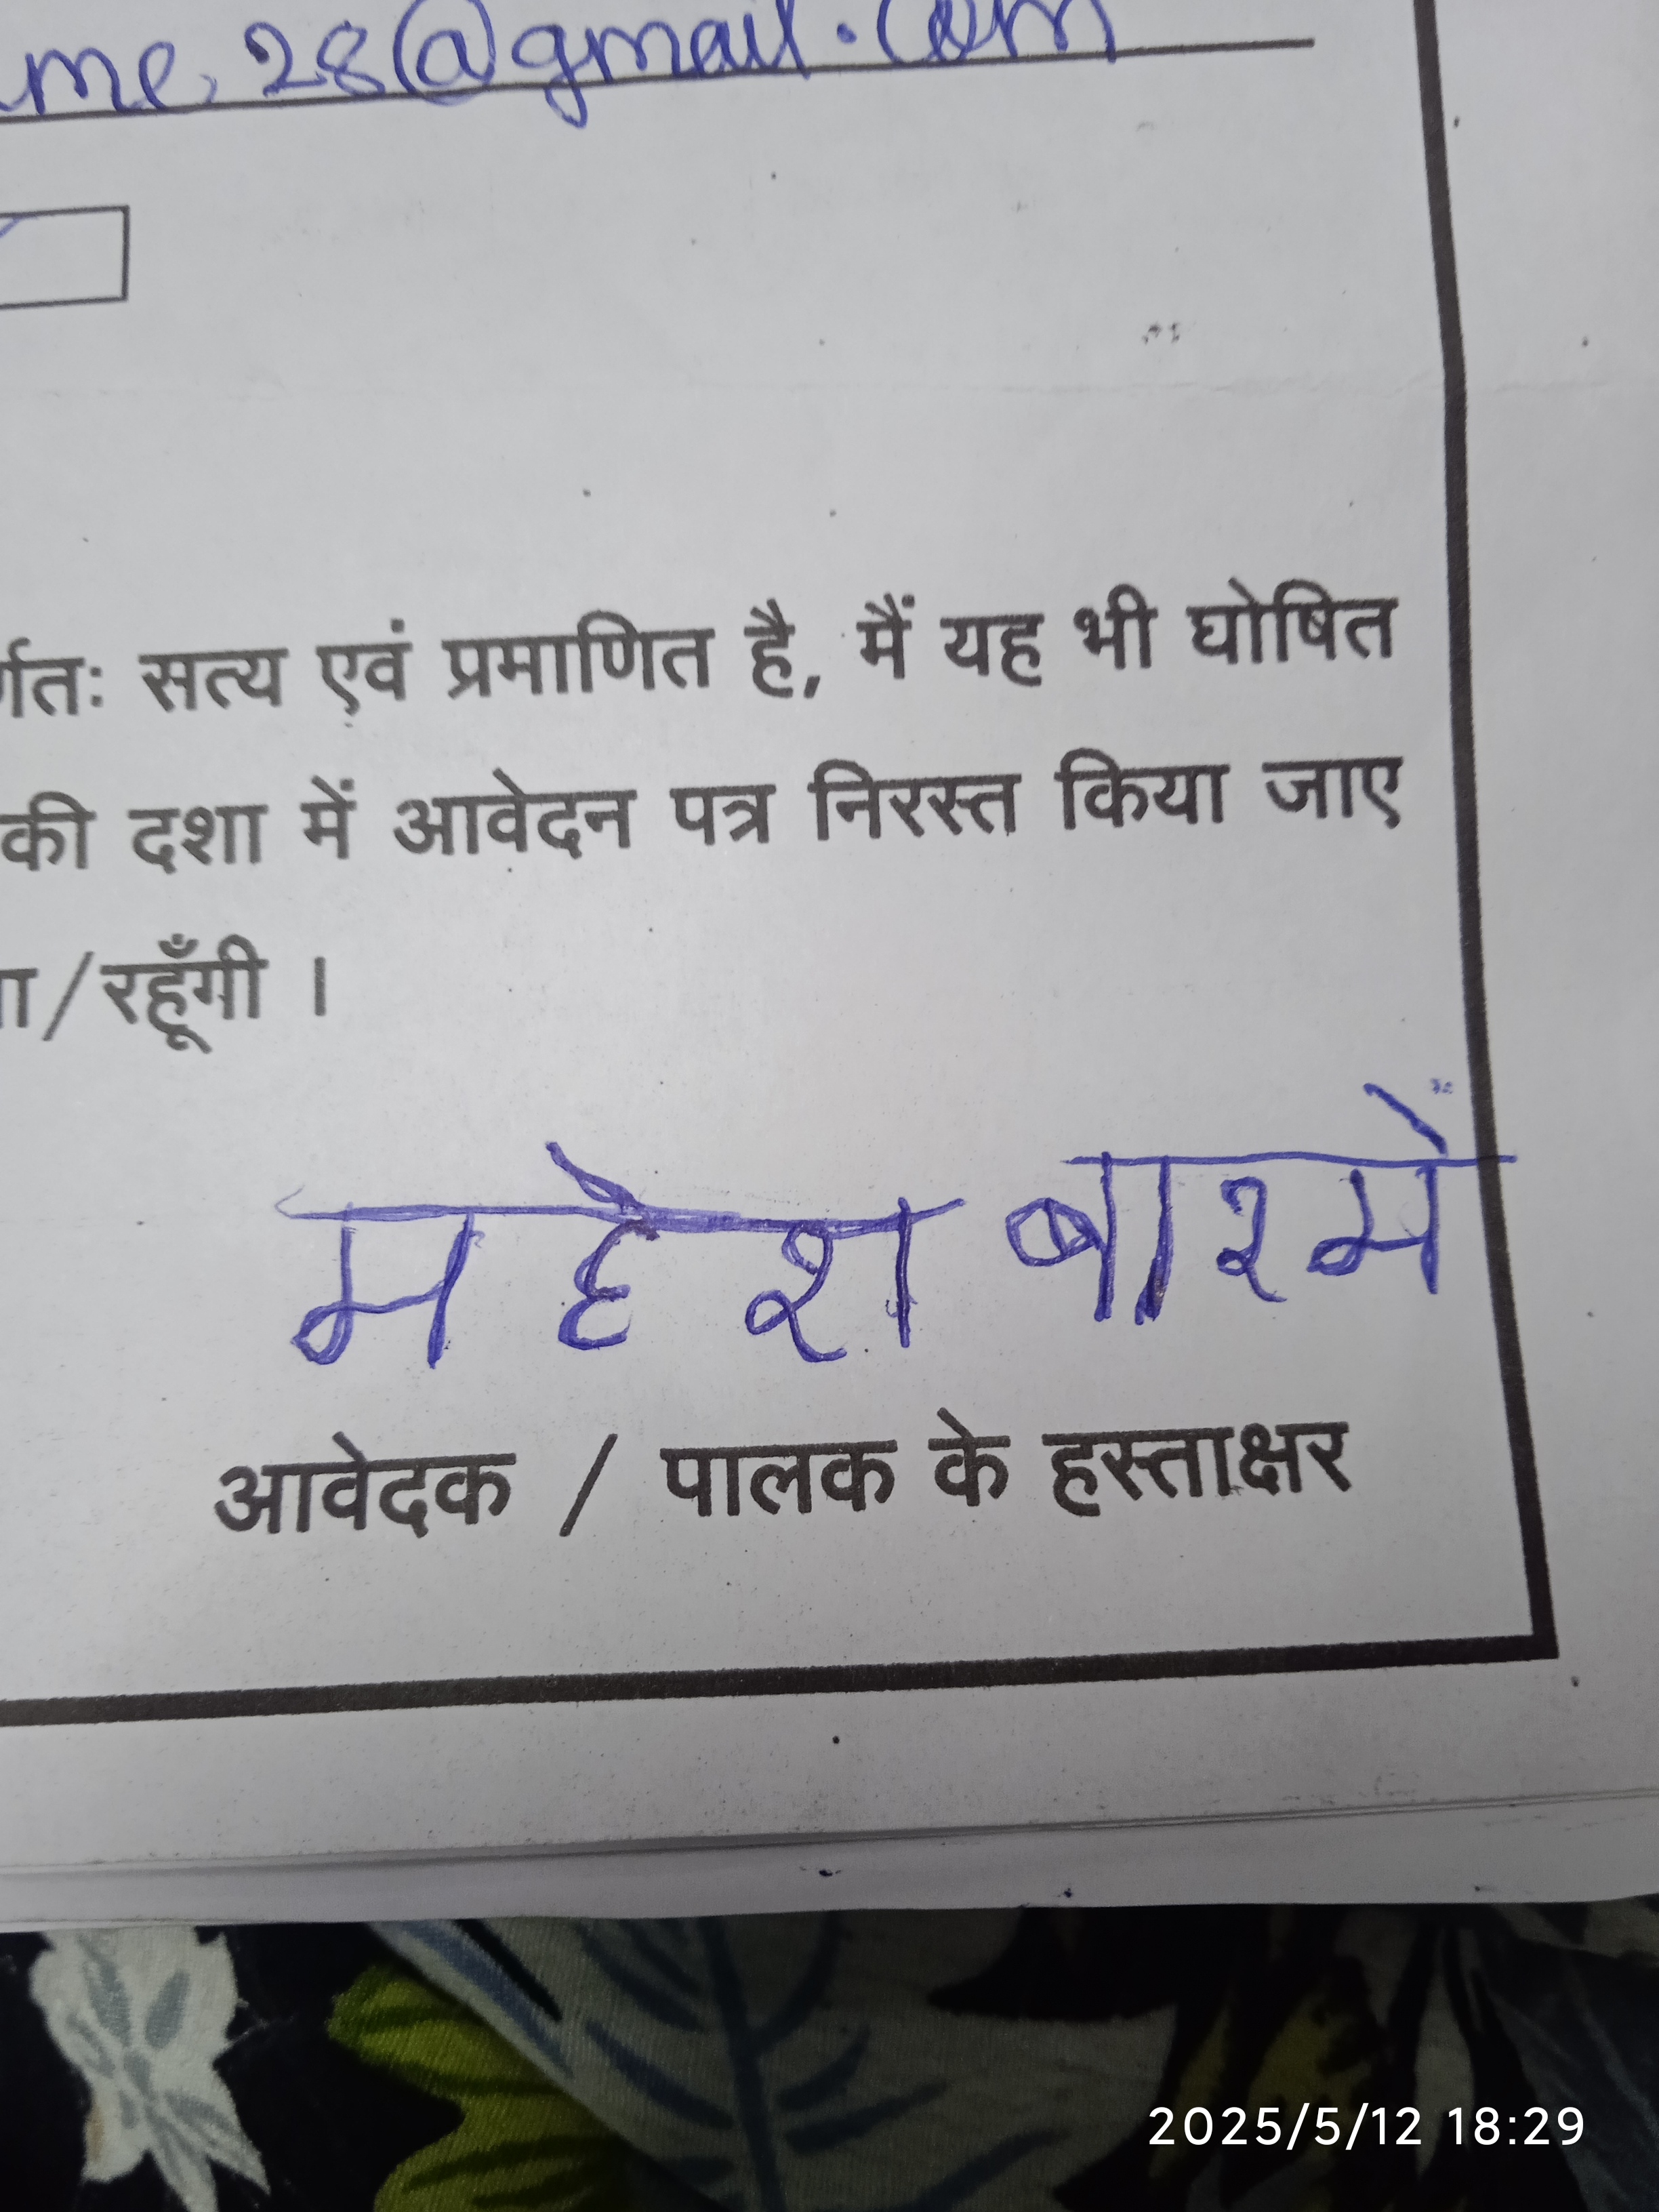 me.28@gmail.com
सत्य एवं प्रमाणित है, मैं यह भी घोषित
की दशा में आवेदन पत्र निरस्त किया जाए
/रहूँगी ।
महेश बारमे
आवेदक / पालक के हस्ताक्षर
2025/5/12 18:29